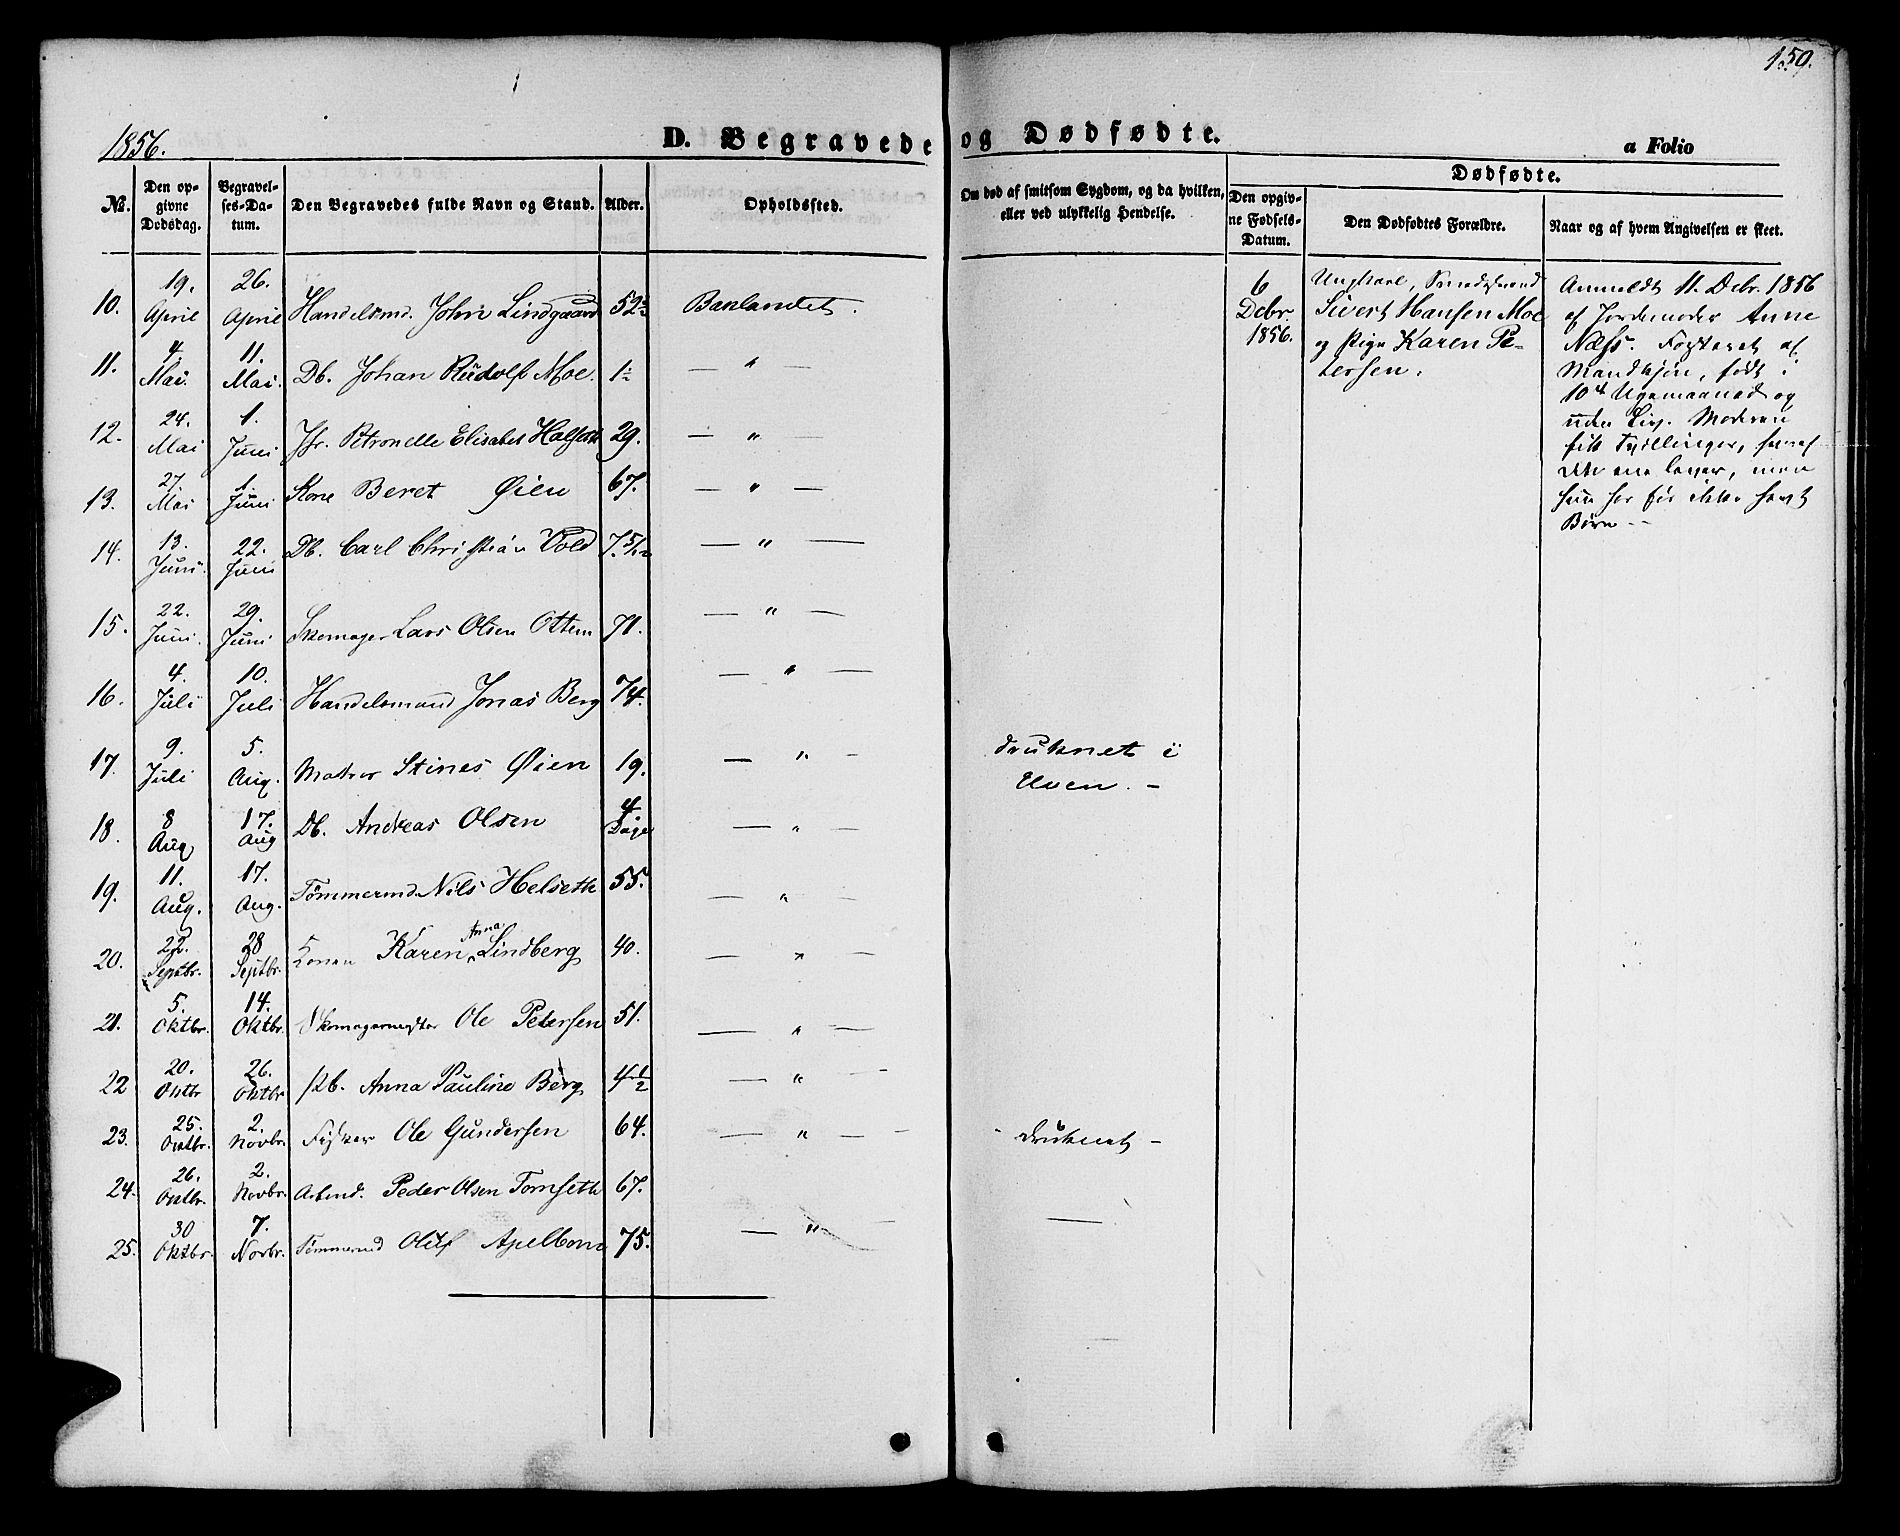 159.
1856. D. Begravede og Dødfødte. a Folio
No. Den opgivne Dødsdag. Begravelses-Datum. Den Begravedes fulde Navn og Stand. Alder. Opholdssted. Om død af smitsom Sygdom, og da hvilken, eller ved ulykkelig Hendelse. Dødfødte.
Den opgivne Fødsels-Datum. Den Dødfødtes Forældre. Naar og af hvem Angivelsen er skeet.
10. 19. April 26. April Handelsmd. John Lindgaard 52 Baklandet.
11. 4. Mai. 11. Mai. Db. Johan Rudolf Moe. 1 — " —
12. 24. Mai 1. Juni Jfr. Petronelle Elisabet 29. — " —
13. 27. Mai 1. Juni Kone Beret Øien 67. — " —
14. 13. Juni. 22. Juni Db. Carl Christian Vold 7.5/12 — " —
15. 22. Juni. 29. Juni Skomager Lars Olsen Ottem 71. — " —
16. 4. Juli 10. Juli Handelsmand Jonas Berg 74. — " —
17. 9. Juli 5. Aug. Matros Stines Øien 19. — " — druknet i Elven. –
18. 8 Aug 17. Aug Db. Andreas Olsen 4 Dage — " —
19. 11. Aug. 17. Aug. Tømmermd. Nils Helseth 55. — " —
20. 22. Septbr. 28 Septbr. Konen Karen Anna Lindberg 40. — " —
21. 5. Oktbr. 14. Oktbr. Skomagermester Ole Petersen 51. — " —
22 20. Oktbr 26. Oktbr Pb. Anna Pauline Berg 4 1/2 — " —
23. 25. Oktbr. 2. Novbr. Fisker Ole Gundersen 64. — " — – druknet –
24. 26. Oktbr. 2. Novbr. Arbmd. Peder Olsen Tomseth 67.
25. 30 Oktbr. 7. Novbr. Tømmermd Oluf Apelbom 75. — " — —
6 Debr 1856.
Ungkarl,
Sivert Hansen Moe
og Pige Karen Pe-
tersen.
Anmeldt 11. Debr. 1856
af Jordemoder Anne
Næss. Fosteret af
Mandkjøn, født i
10de Ugemaaned og
uden Liv. Moderen
fik Tvillinger, hvoraf
det ene lever, men
hun har før ikke havt
Børn –